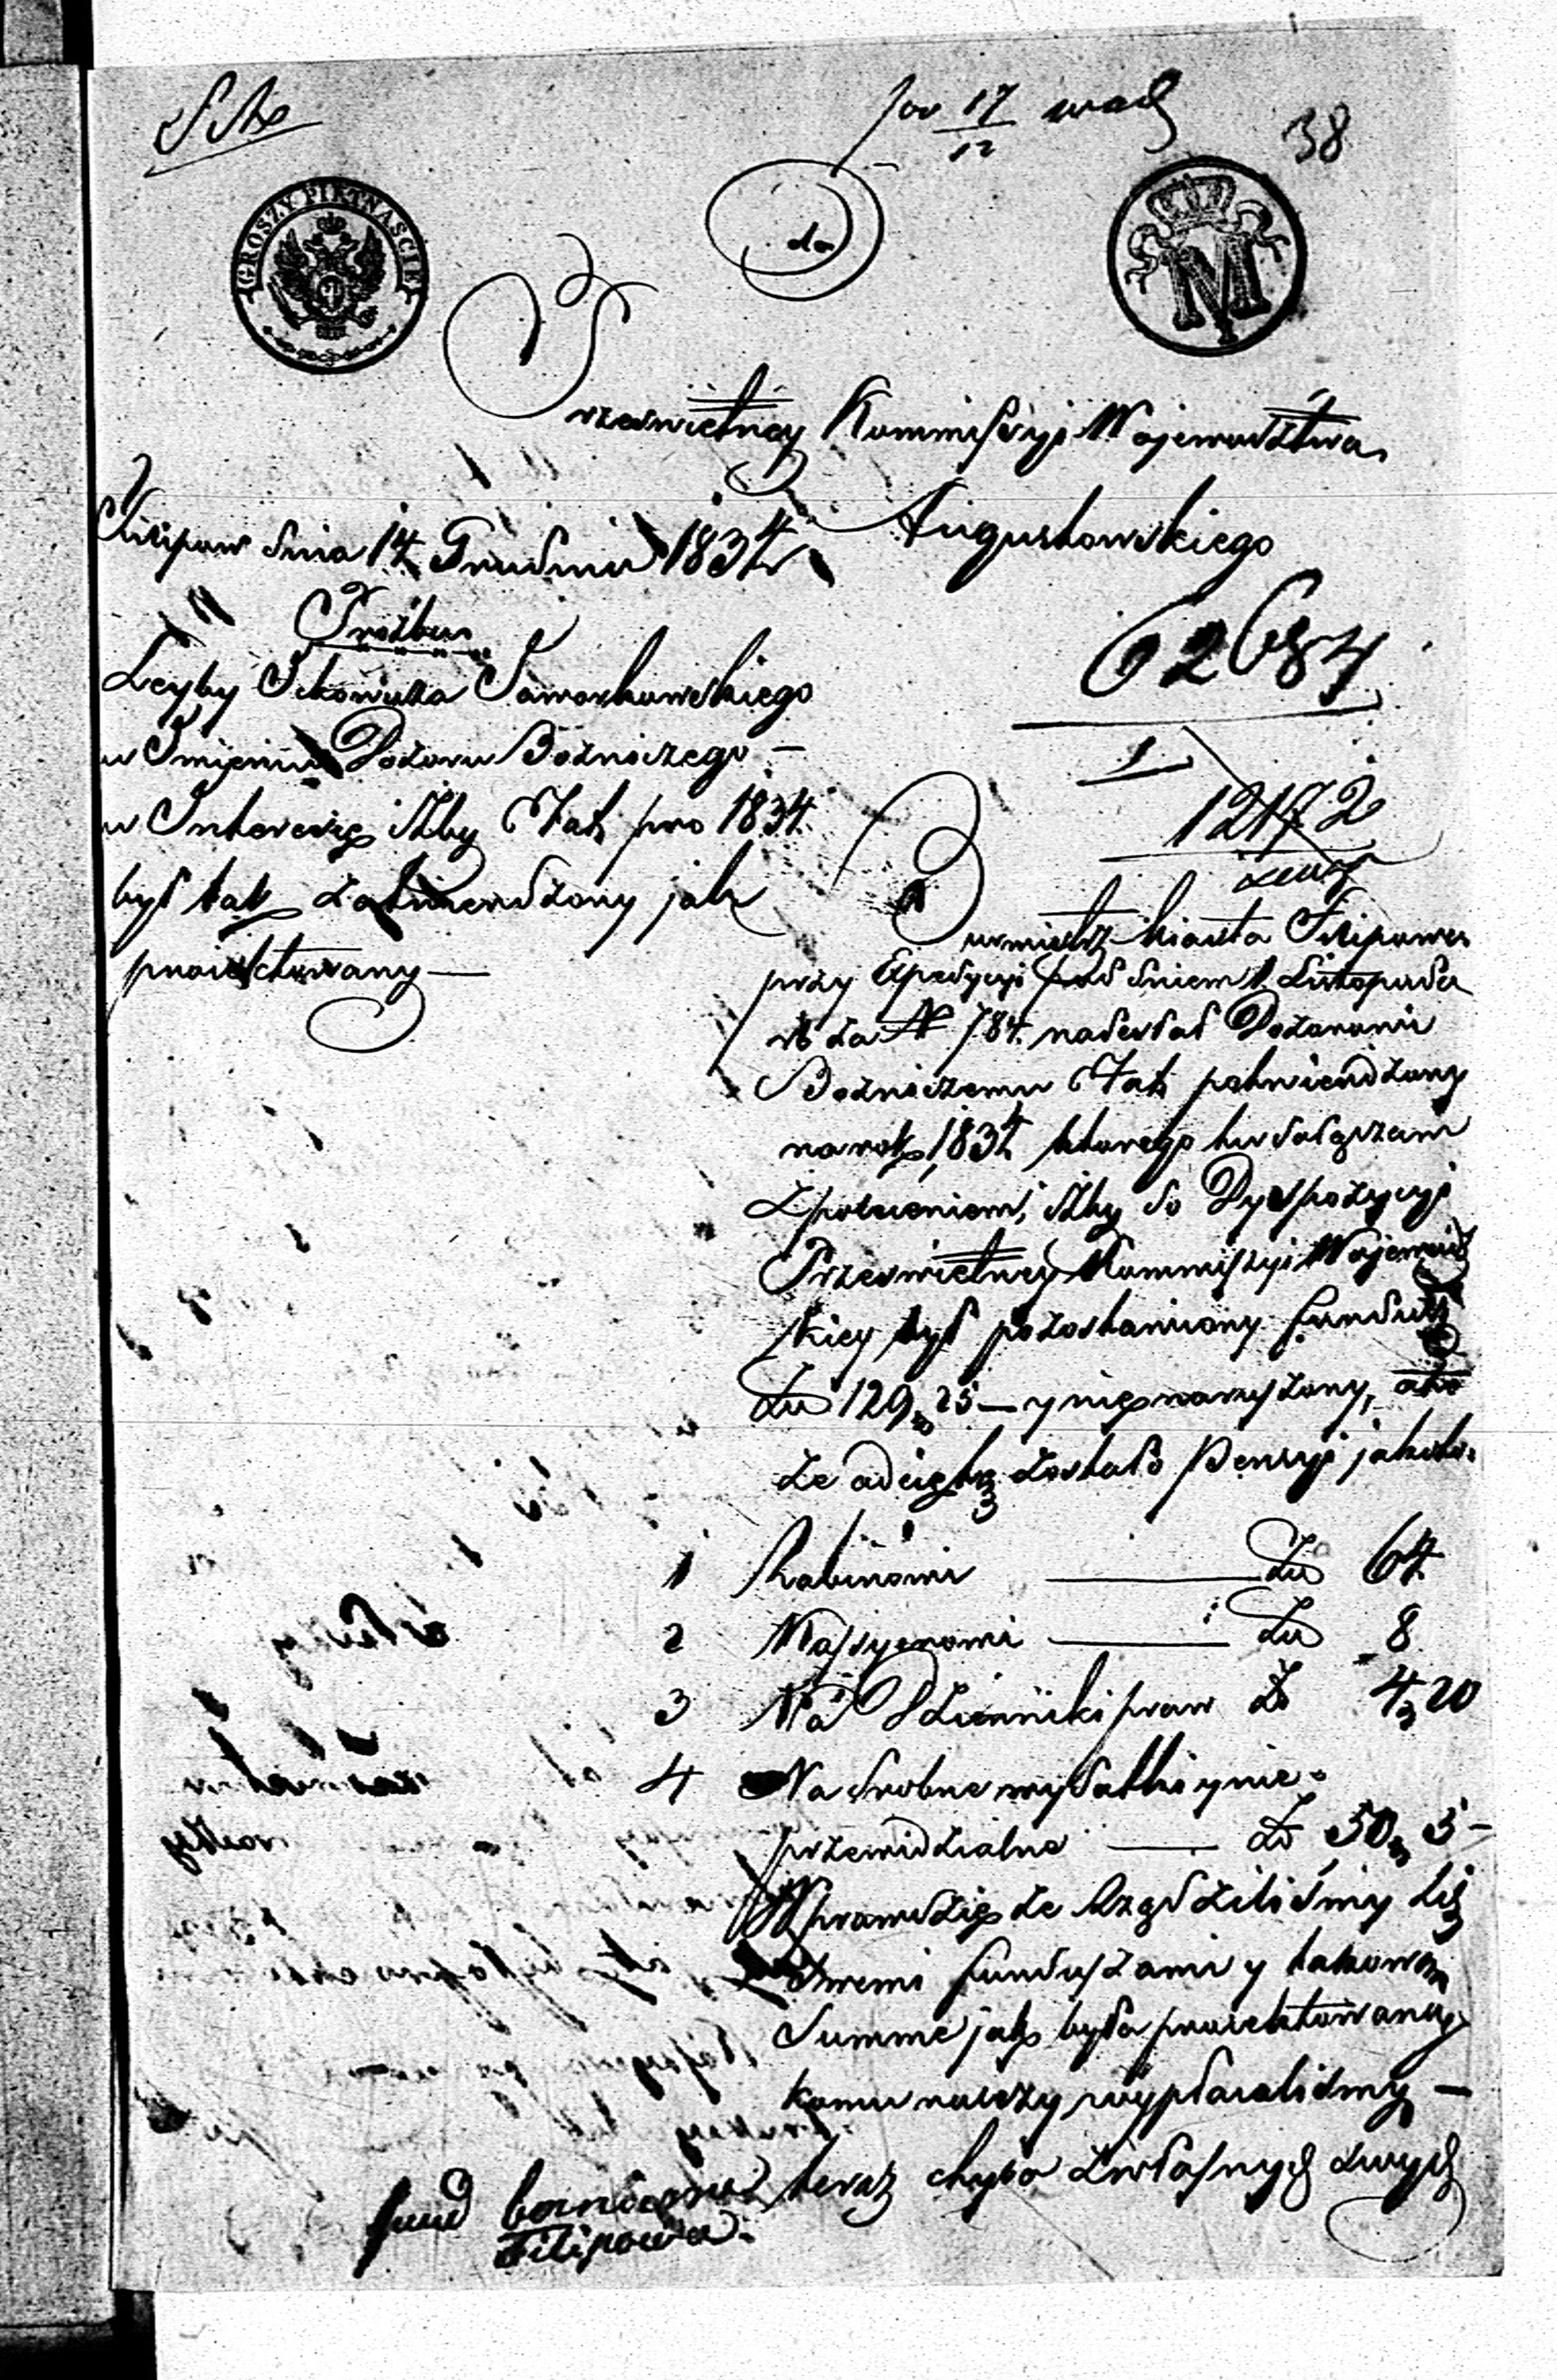 38
17
12
GROSZY PIĘTNAŚCIE
M
do
Prześwietney Kommissyi Wojewodztwa
Augustowskiego
Filipow dnia 14 Grudnia 1834
62684
Prożba
Leyby Ickowicza
w Imieniu Dozoru Bożniczego —
w Interesię iżby Etat pro 1834
był tak zatwierdzony jak
proiektowany —
1
12172
Burmistrz Miasta Filipowa
przy Expedycyi pod dniem 1. Listopada
rb za N 784. nadesłał Dozorowi
Bożniczemu Etat potwierdzony
na rok 1834 ktorego tu dołączam
z poleceniem, iżby do Dyspozycyi
Prześwietney Kommissyi Wojewodz
kiey był pozostawiony fundusz
Zł 129, 25 — y nie naruszony, ato
że odciętą zostało Pensyi jakoto:
1 Rabinowi — Zł 64
2 Massyerowi — Zł 8
3 Na Dzienniki praw Zł 4, 20
4 Na drobne wydatki y nie-
przewidzialne — Zł 50, 5 —
Wprawdzię że rządziliśmy się
swemi funduszami y takową
Summe jak była proiektowaną
komu należy wypłaciliśmy —
teraz chyba z własnych swych
fund bożniczy
Filipowa.